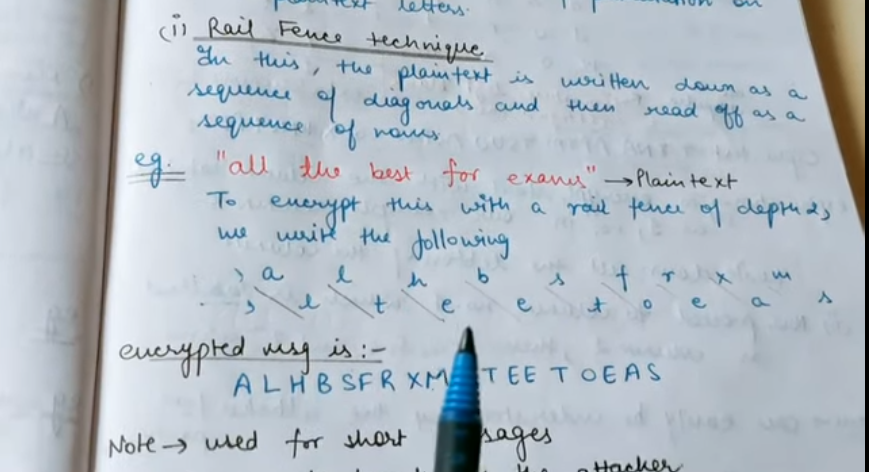 plaintext letters.
(i) Rail Fence technique
In this, the plaintext is written down as a
sequence of diagonals and then read off as a
sequence of rows
eg. "all the best for exams" → Plaintext
To encrypt this with a rail fence of depth 2,
we write the following
a l h b s f r x m
l t e e t o e a s
encrypted msg is :-
ALHBSFRXM TEETOEAS
Note → used for short sages
the attacker